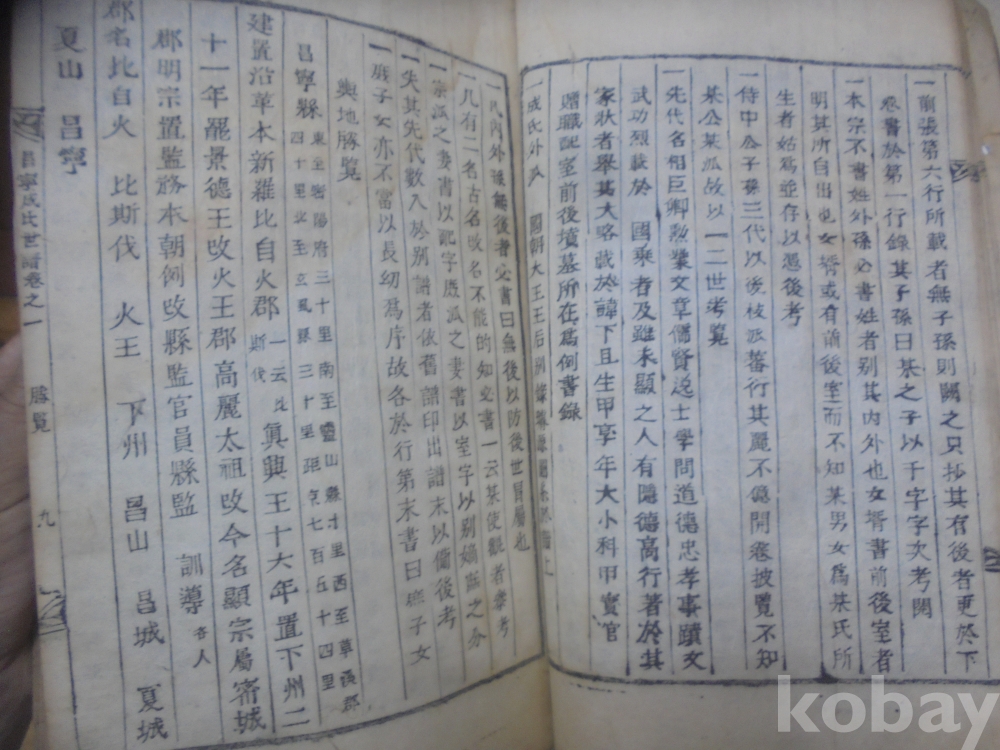 一前張第六行所載者無子孫則闕之只抄其有後者更於下
卷書於第一行錄其子孫曰某之子以千字字次考閱
一本宗不書姓外孫必書姓者別其內外也女壻書前後室者
明其所自出也女壻或有前後室而不知某男女爲某氏所
生者姑爲並存以憑後考
一侍中公子孫三代以後枝派蕃衍其麗不億開卷披覽不知
某公某派故以一二世考覽
一先代名相巨卿勲業文章儒賢逸士學問道德忠孝事蹟文
武功烈載於 國乘者及雖未顯之人有隱德高行著於其
家狀者擧其大略載於諱下且生甲享年大小科甲實官
贈職配室前後墳墓所在爲例書錄
一成氏外派 大王王后別
一氏內外 後者必書曰無後以防後世冒屬也
一凡有二名古名改名不能的知必書一云某使觀者參考
一宗派之妻書以配字庶派之妻書以室字以別嫡庶之分
一失其先代欲入於別譜者依舊譜印出譜末以備後考
一庶子女亦不當以長幼爲序故各於行第末書曰庶子女
輿地勝覽
昌寧縣 東至密陽府三十里南至靈山縣才里西至草溪郡四十里北至玄風縣三十里距京七百五十四里
建置沿革本新羅比自火郡 一云比斯伐 眞興王十六年置下州二
十一年罷景德王改火王郡高麗太祖改今名顯宗屬密城
郡明宗置監務本朝例改縣監官員縣監 訓導 各一人
郡名比自火 比斯伐 火王 下州 昌山 昌城 夏城
夏山 昌寧
昌寧成氏世譜卷之一 勝覽 九
kobay